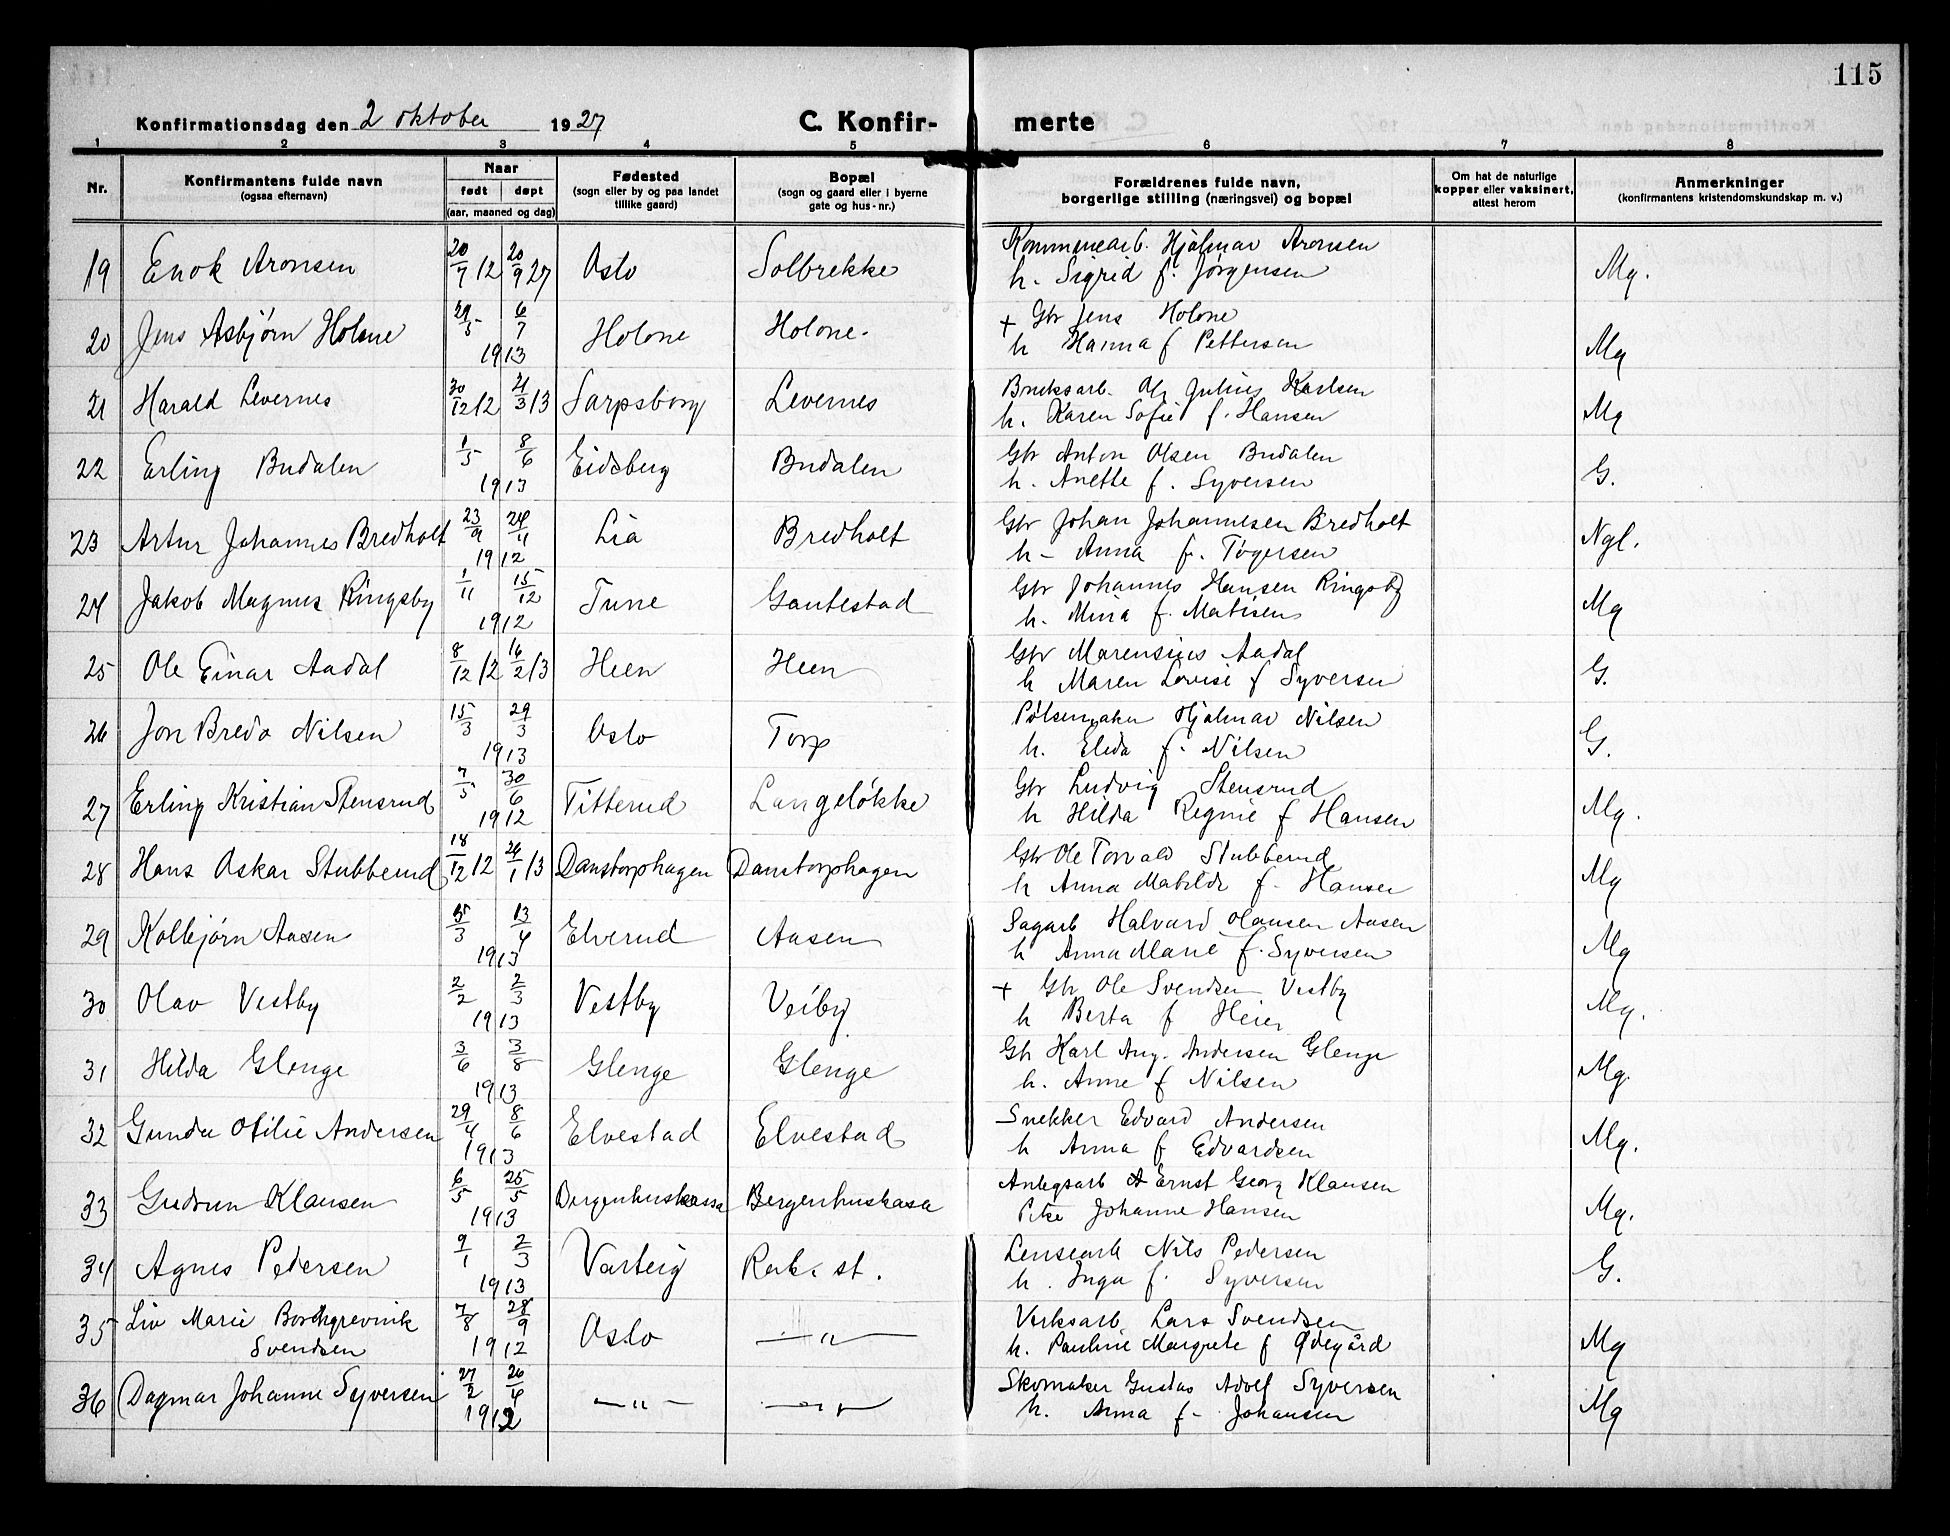 115
Konfirmationsdag den 2 oktober 1927 C. Konfirmerte
1 2 3 4 5 6 7 8
Nr. Konfirmantens fulde navn (ogsaa efternavn) Naar født døpt (aar, maaned og dag) Fødested (sogn eller by og paa landet tillike gaard) Bopæl (sogn og gaard eller i byerne gate og hus-nr.) Forældrenes fulde navn, borgerlige stilling (næringsvei) og bopæl Om hat de naturlige kopper eller vaksinert, attest herom Anmerkninger (konfirmantens kristendomskundskap m. v.)
19 Enok Aronsen 20/7 12 20/9 27 Oslo Solbrekke Kommunearb. Hjalmar Aronsen
h. Sigrid f. Jörgensen Mg.
20 Jens Asbjørn Holone 29/5 6/7 1913 Holone Holone. + Gbr Jens Holone
h Hanna f Pettersen Mg
21 Harald Levernes 30/12 12 21/3 13 Sarpsborg Levernes Bruksarb. Ole Julius Karlsen
h. Karen Sofie f. Hansen Mg
22 Erling Budalen 1/5 8/6 1913 Eidsberg Budalen Gbr Anton Olsen Budalen
h. Anette f. Syversen G.
23 Artur Johannes Bredholt 23/9 24/11 1912 Lia Bredholt Gbr Johan Johannesen Bredholt
h - Anna f. Tögersen Ngl.
24 Jakob Magnus Ringsby 1/11 15/12 1912 Tune Gautestad Gbr Johannes Hansen Ringsby
h. Mina f. Matisen Mg
25 Ole Einar Aadal 8/12 12 16/2 13 Heen Heen Gbr Marensius Aadal
h Maren Lovise f Syversen G.
26 Jon Bredo Nilsen 15/3 29/3 1913 Oslo Torp Pølsemaker Hjalmar Nilsen
h. Elida f. Nilsen G.
27 Erling Kristian Stensrud 7/5 30/6 1912 Titterud Langeløkke Gbr Ludvig Stensrud
h Hilda Regine f Hansen Mg.
28 Hans Oskar Stubberud 18/12 12 26/1 13 Danstorphagen Danstorphagen Gbr Ole Torvald Stubberud
h Anna Matilde f. Hansen Mg
29 Kolbjørn Aasen 5/3 13/4 1913 Elverud Aasen Sagarb Halvard Olausen Aasen
h Anna Marie f. Syversen Mg
30 Olav Vestby 2/2 2/3 1913 Vestby Veiby + Gbr Ole Svendsen Vestby
h Berta f Heier Mg.
31 Hilda Glenge 3/6 3/8 1913 Glenge Glenge Gb Karl Aug. Andersen Glenge
h. Anne f Nilsen Mg.
32 Gunda Otilie Andersen 29/4 8/6 1913 Elvestad Elvestad Snekker Edvard Andersen
h Anna f Edvardsen Mg.
33 Gudrun Klausen 6/5 25/5 1913 Bergenhuskassa Bergenhuskasa Anlegsarb Ernst Georg Klausen
Pike Johanne Hansen Mg.
34 Agnes Pedersen 9/1 2/3 1913 Varteig Rak. st. Lensearb Nils Pedersen
h. Inga f. Syversen G.
35 Liv Marie Borchgrevink
Svendsen 7/8 28/9 1912 Oslo - " - Verksarb. Lars Svendsen
h. Pauline Margrete f Ødegård Mg
36 Dagmar Johanne Syversen 27/2 26/4 1912 - " - - " - Skomaker Gustav Adolf Syversen
h. Anna f- Johansen Mg